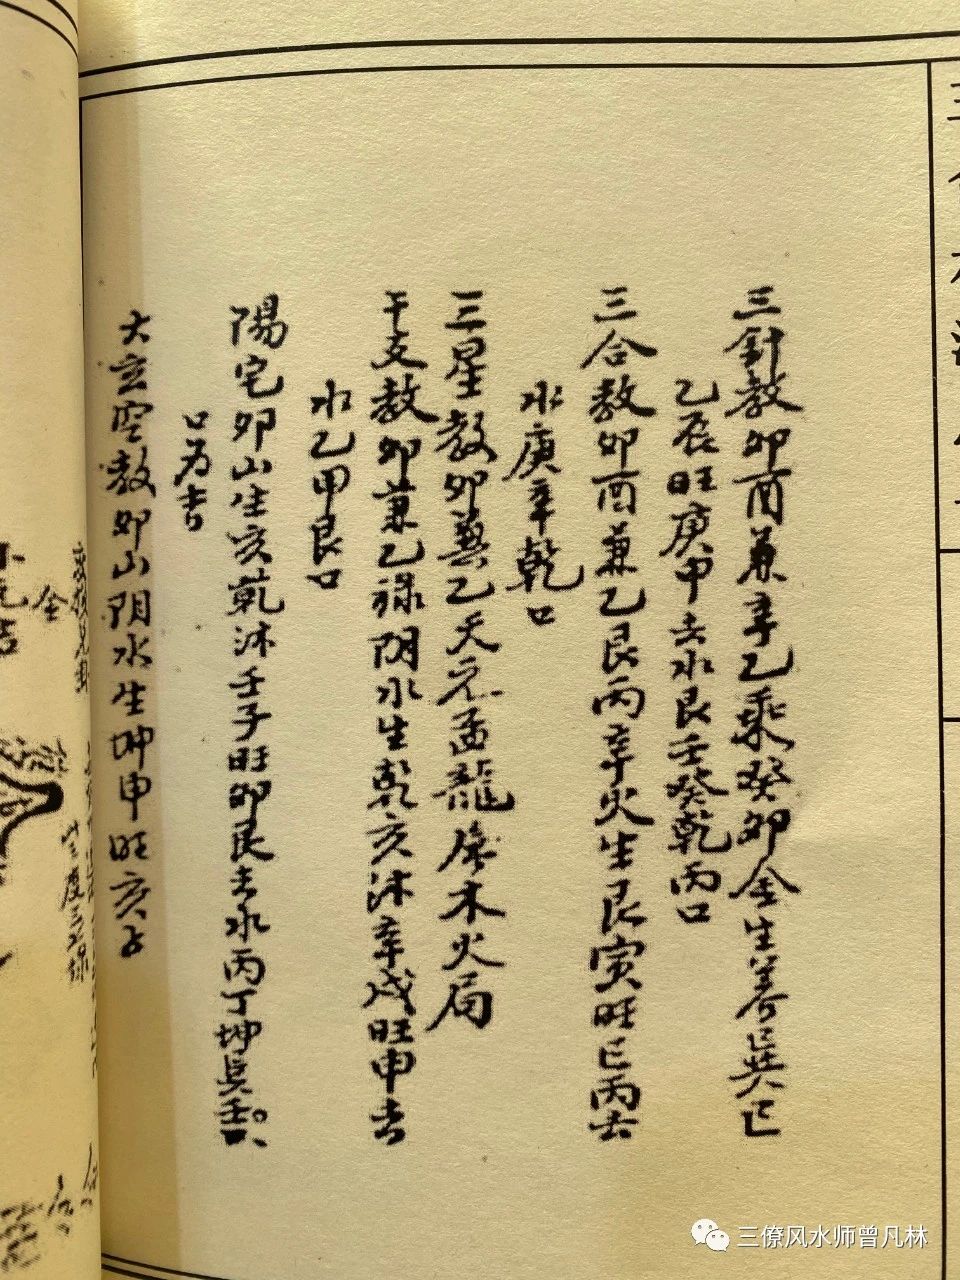 三針教卯酉兼辛乙乘癸卯金生養巽巳
乙辰旺庚甲去水艮壬癸乾丙口
三合教卯酉兼乙艮丙辛火生艮寅旺巳丙去
水庚辛乾口
三星教卯兼乙天元孟龍屬木火局
干支教卯兼乙禄阴水生乾亥沐辛戌旺申去
水乙甲艮口
陽宅卯山生亥乾沐壬子旺卯艮去水丙丁坤
口为吉
大玄空教卯山阴水生坤申旺亥
三僚风水师曾凡林